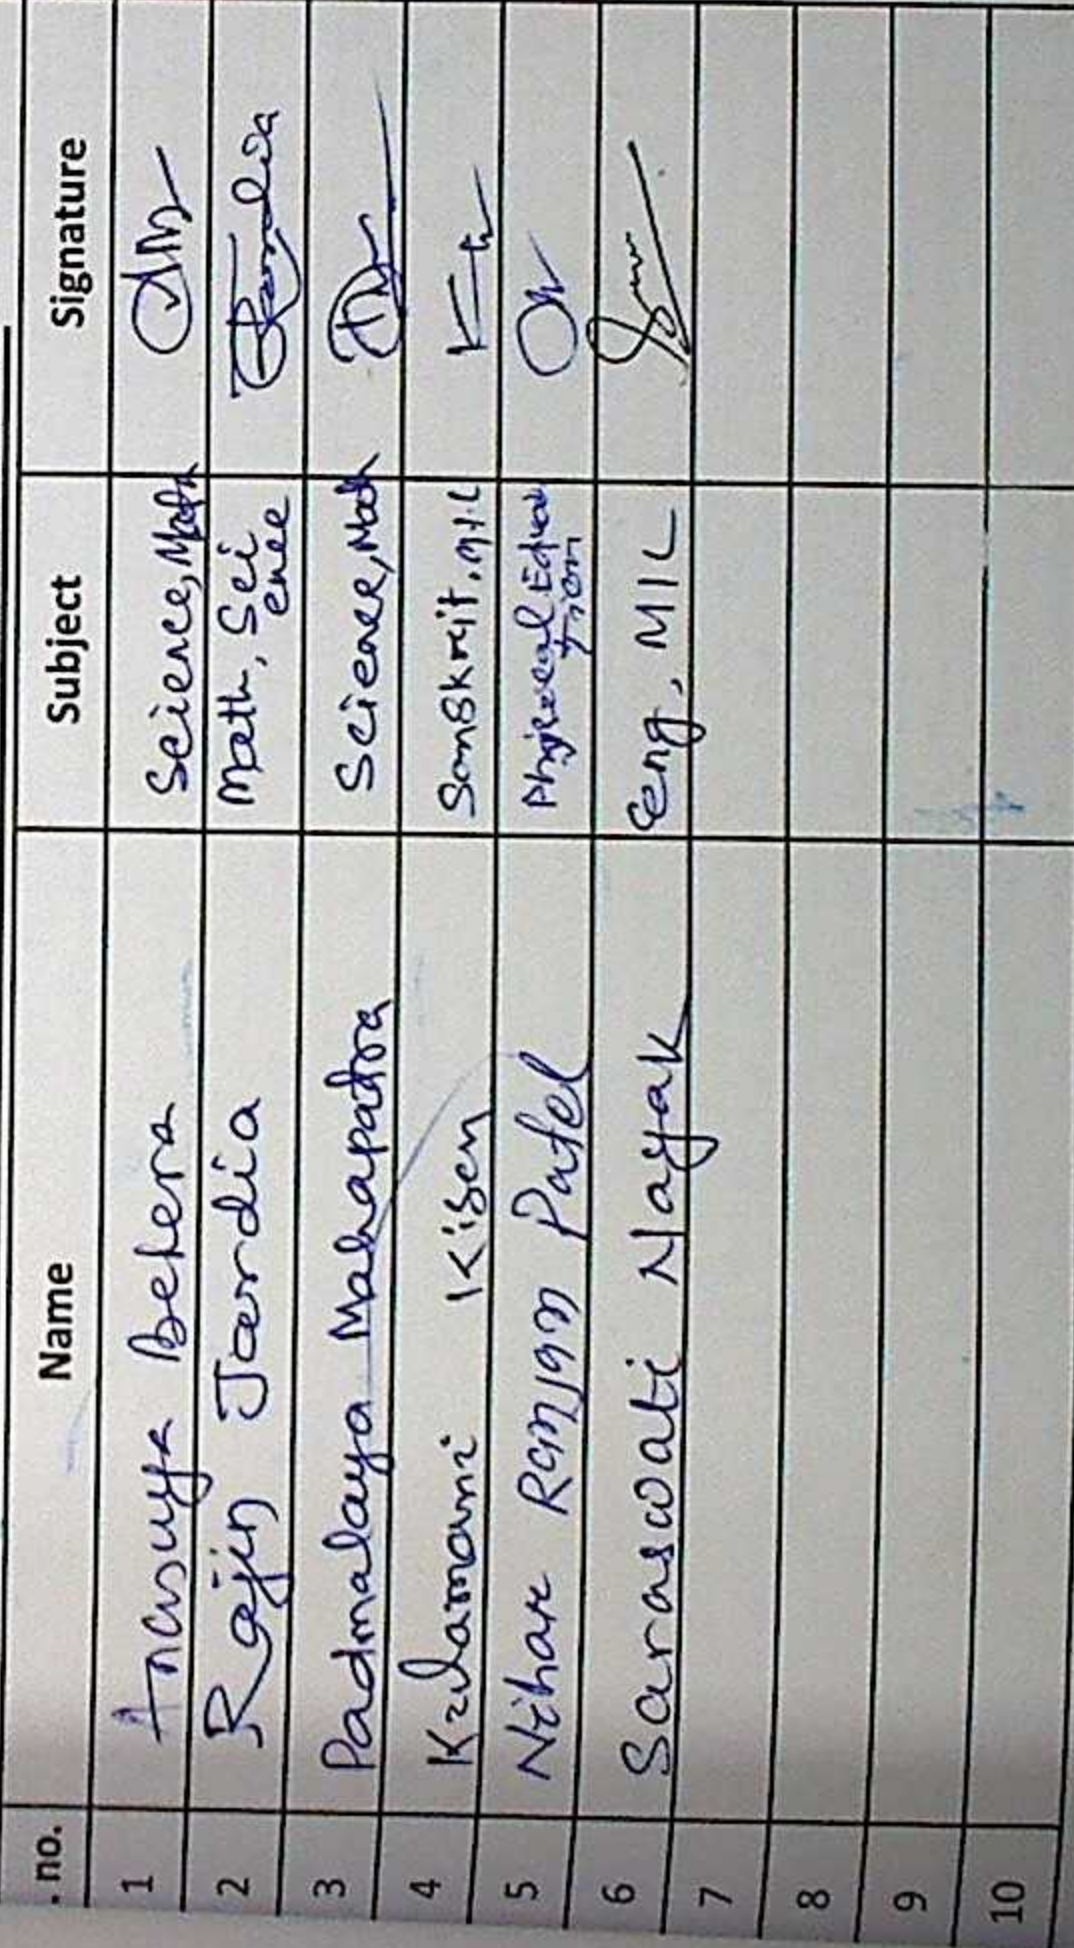 . no. Name Subject Signature
1 Anasuya Behera Science, Math
2 Rajin Jardia Math, Sci
ence
3 Padmalaya Mahapatra Science, Math
4 Kisan Sanskrit, MIL
5 Nihar Ranjan Patel Physical Educa
tion
6 Saraswati Nayak Eng, MIL
7
8
9
10